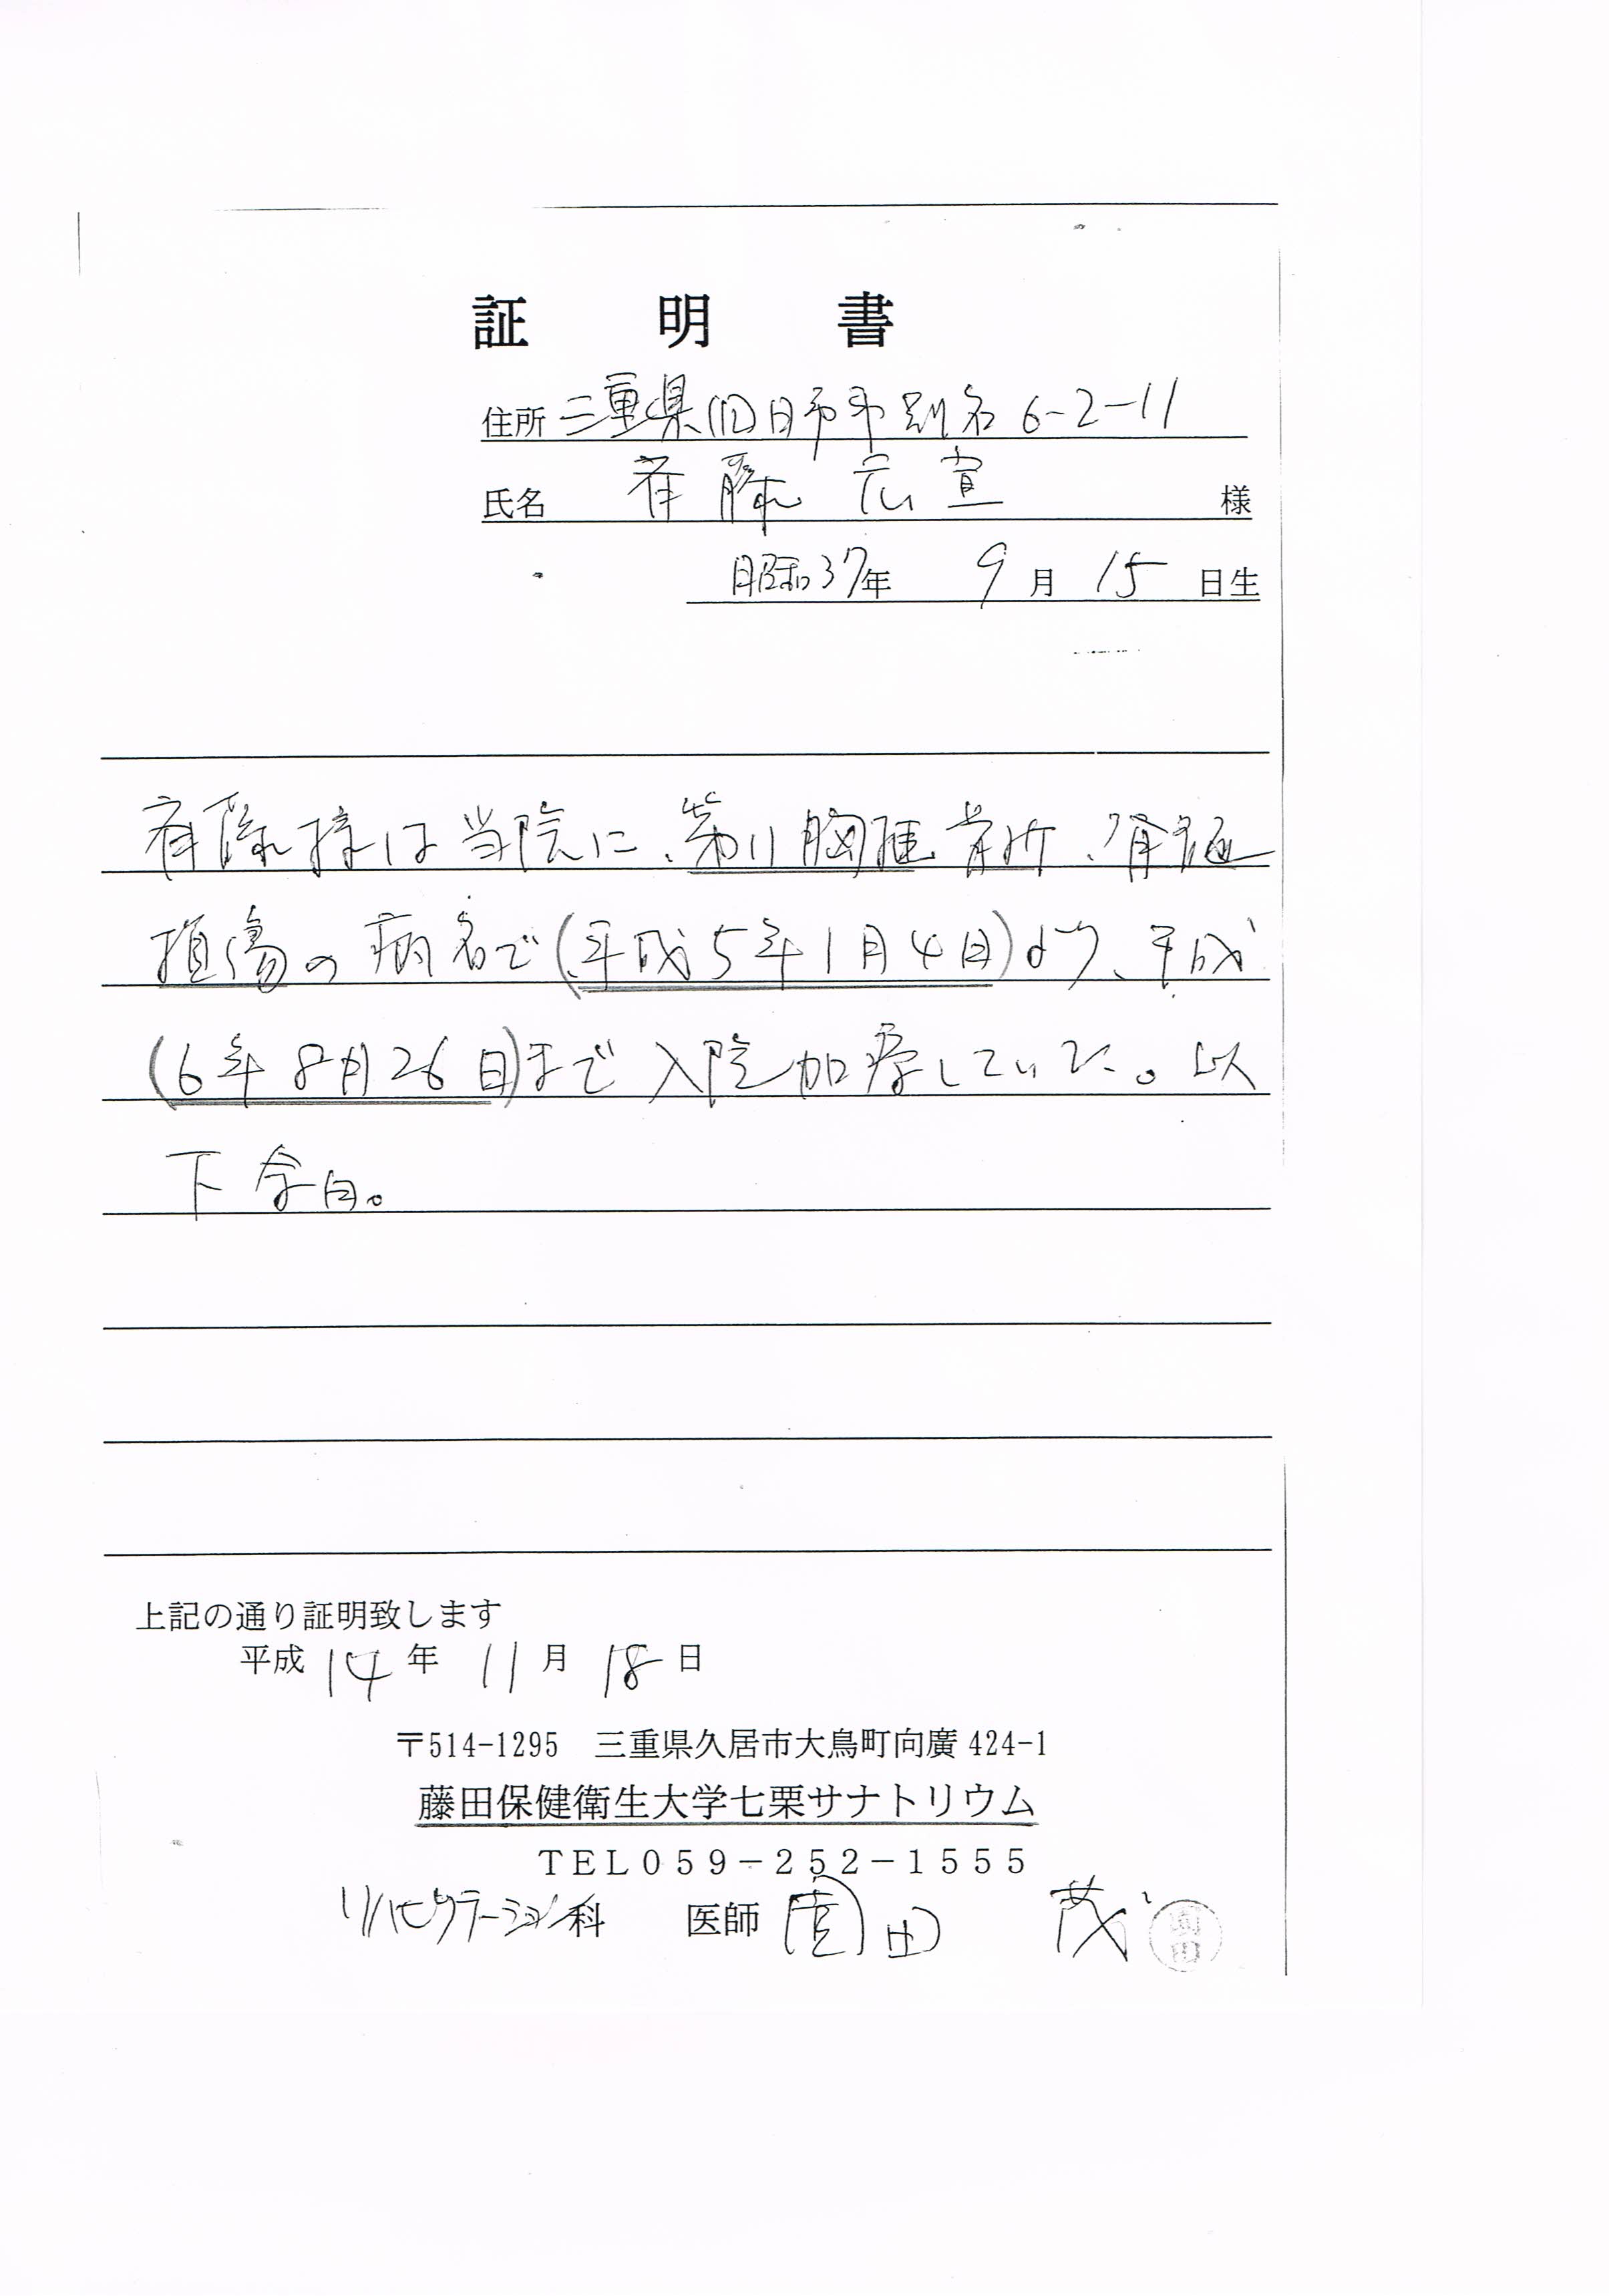 証明書
住所 三重県四日市市別名6-2-11
氏名 斉藤広宣 様
昭和37年 9月 15日生
斉藤様は当院に、第11胸椎骨折、脊髄
損傷の病名で(平成5年1月4日)より、平成
(6年8月26日)まで入院加療していた。以
下余白。
上記の通り証明致します
平成14年11月18日
〒514-1295 三重県久居市大鳥町向廣424-1
藤田保健衛生大学七栗サナトリウム
TEL059-252-1555
リハビリテーション科 医師 園田 茂
園田